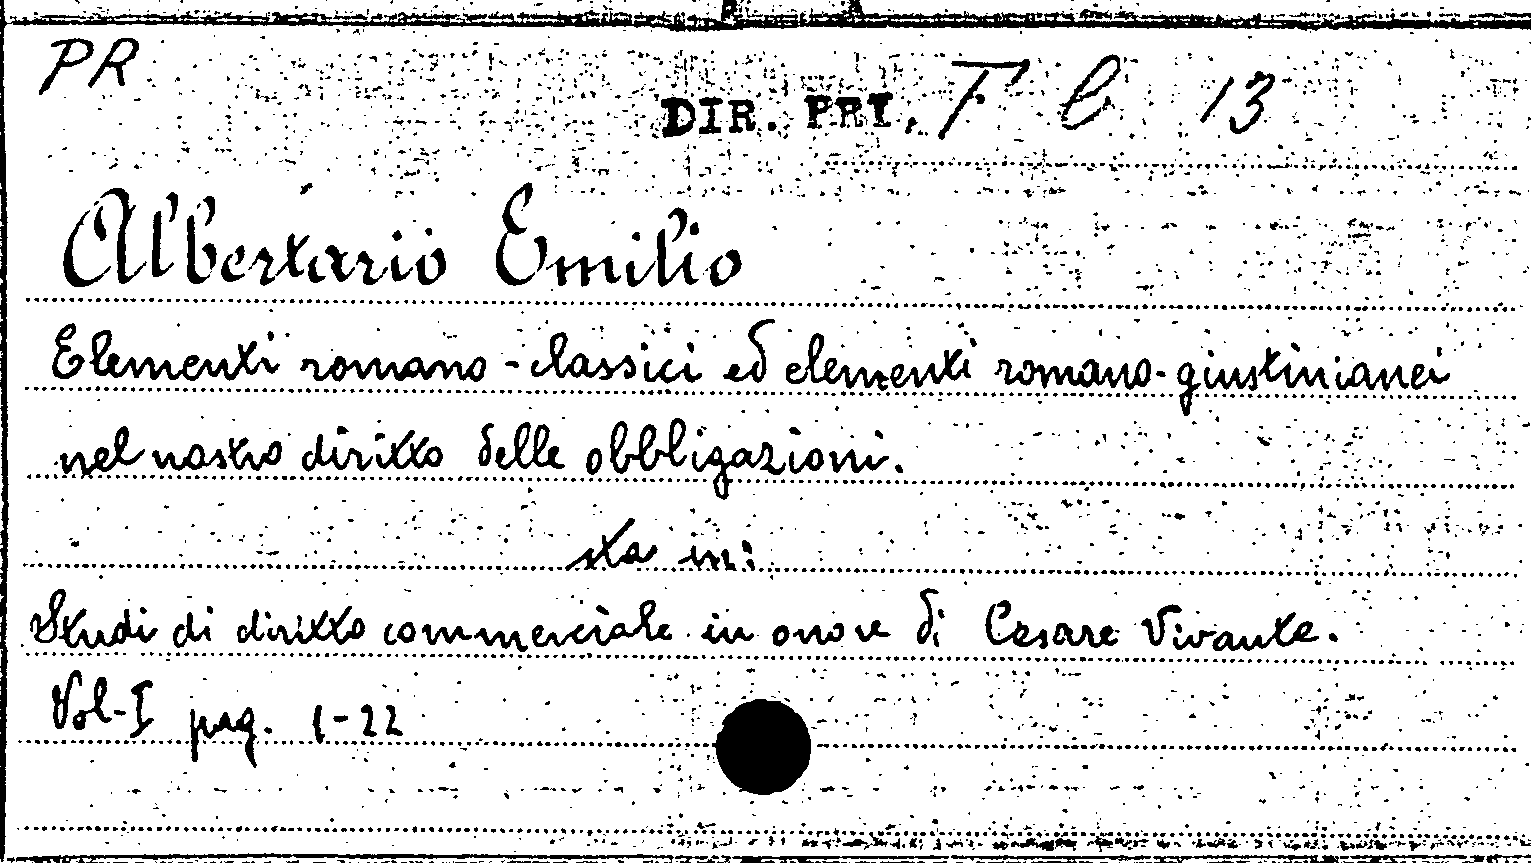 PR
DIR. PRI. F b 13
Albertario Emilio
Elementi romano-classici ed elementi romano-giustinianei
nel nostro diritto delle obbligazioni.
sta in:
Studi di diritto commerciale in onore di Cesare Vivante.
Vol-I pag. 1-22